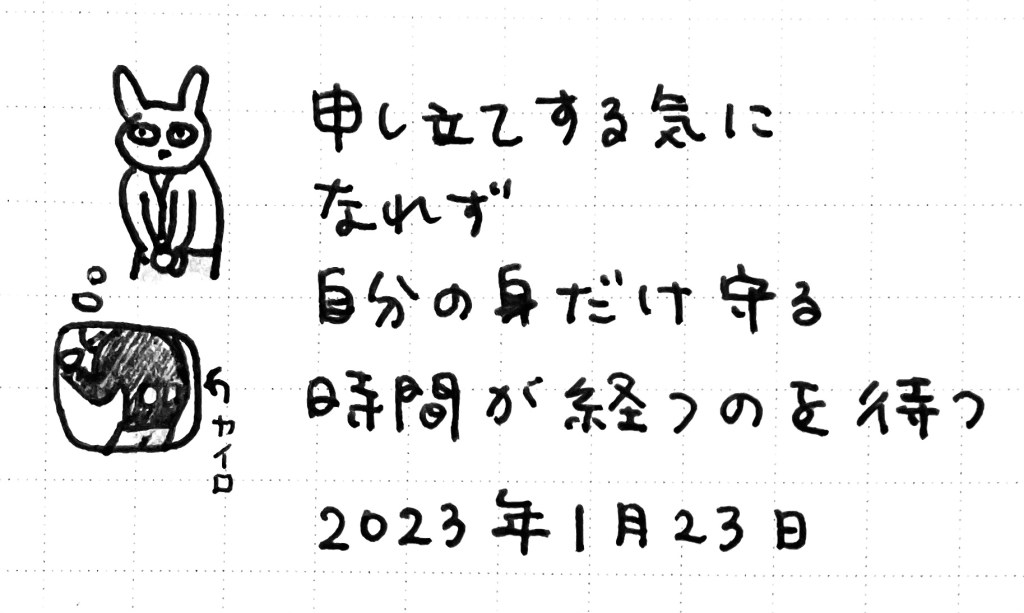 申し立てする気に
なれず
自分の身だけ守る
時間が経つのを待つ
2023年1月23日
カイロ